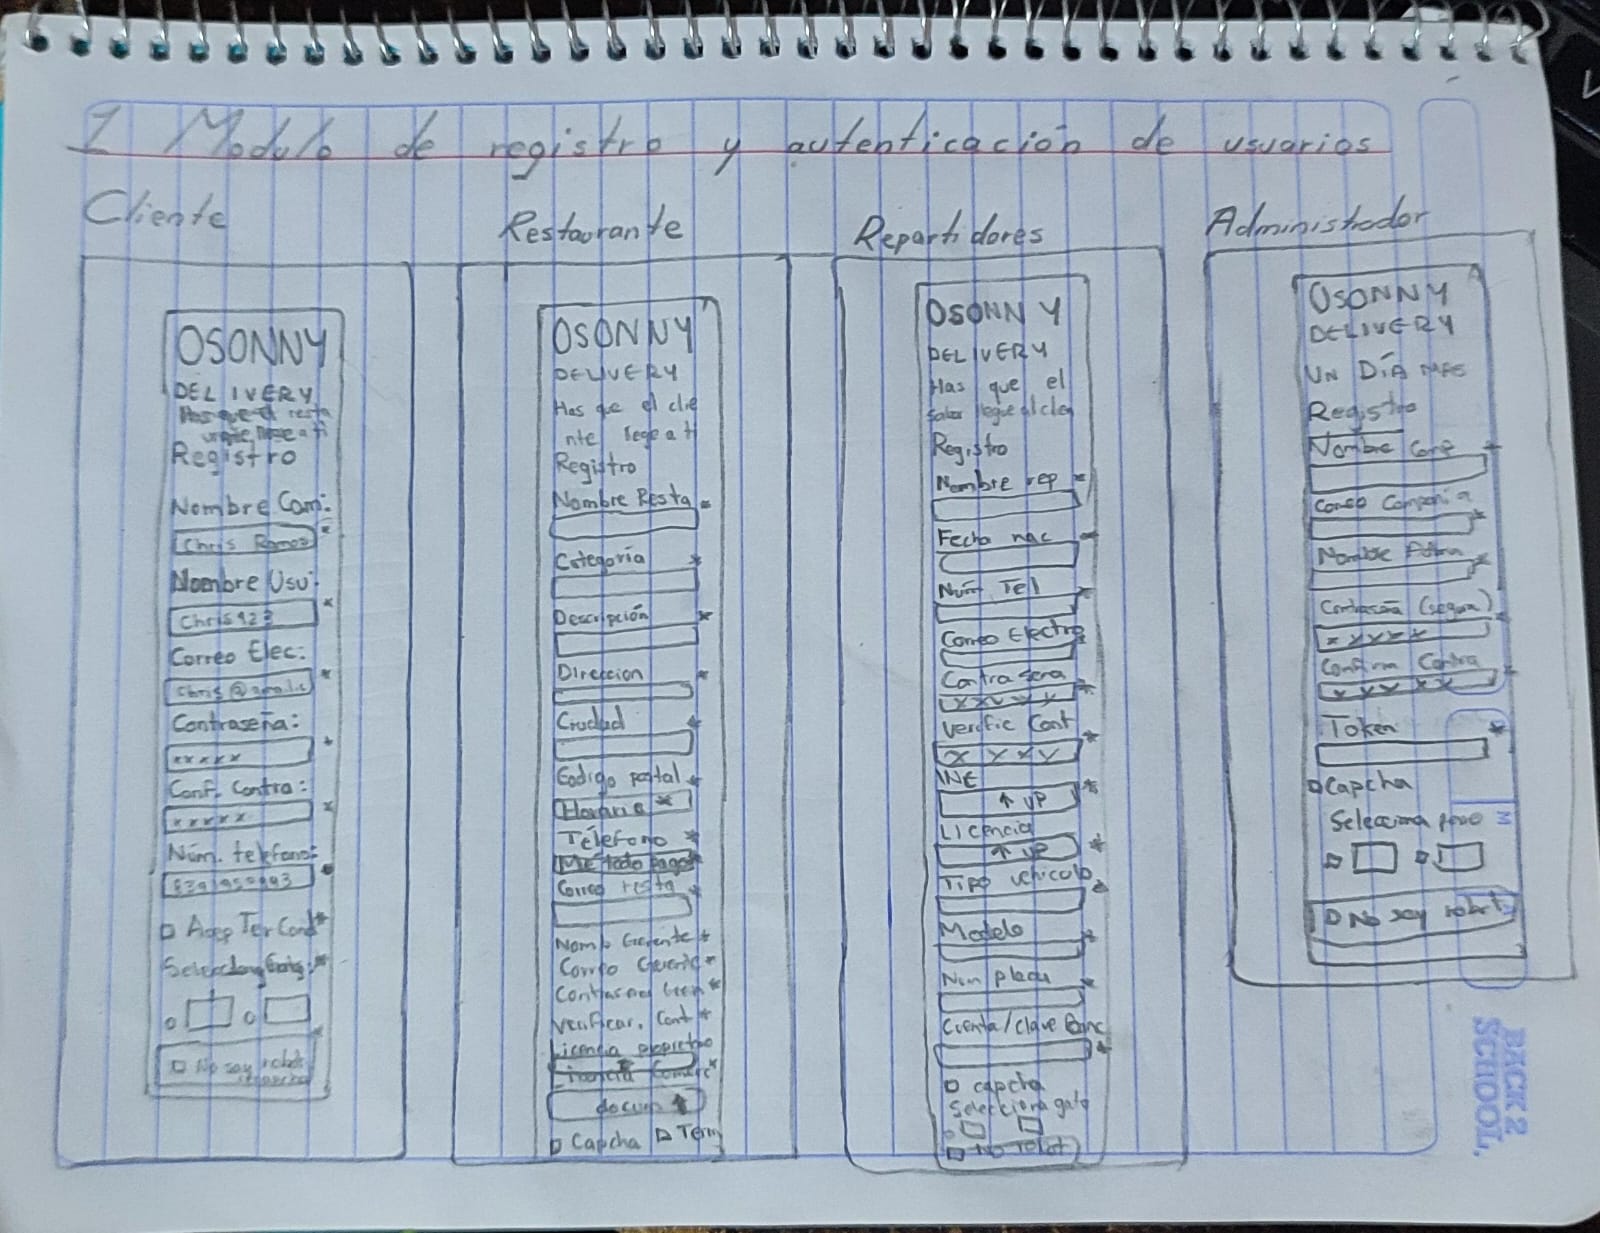 1 Modulo de registro y autenticación de usuarios
Cliente
OSONNY
DELIVERY
Has que el resta
Registro
Nombre Com:
Chris Ramos
Nombre Usu:
Chris923
Correo Elec:
Contraseña:
xxxxx
Conf. Contra:
xxxxx
Núm. telefono:
Acep Ter Cond*
No soy robot
Restaurante
OSONNY
DELIVERY
Has que el clie
nte llegue a ti
Registro
Nombre Resta *
Categoría *
Descripción *
Direccion *
Ciudad *
Codigo postal *
Horario *
Teléfono *
Metodo pago*
Correo resta *
Nomb Gerente *
Correo Gerente *
Contrasena Geren *
Verificar. Cont *
Licencia propietao
Licencia Comerc*
docum ↑
Capcha Term
Repartidores
OSONNY
DELIVERY
Has que el
sabor llegue al clien
Registro
Nombre rep *
Fecha nac *
Núm Tel *
Correo Electro *
Contrasena *
x x v x y
verific Cont *
x x x y
INE *
↑ UP
Licencia *
↑ UP
Tipo vehiculo *
Modelo *
Num placa *
Cuenta/clave Banc *
capcha
Selecciona gato
No robot
Administrador
OSONNY
DELIVERY
UN DÍA MAS
Registro
Nombre Comp *
Correo Compañia *
Nombre Admn *
Contraseña (segura) *
x x x x x
Confirm Contra *
x x x x x
Token *
Capcha
Selecciona perro
No soy robot
M
BACK 2
SCHOOL.